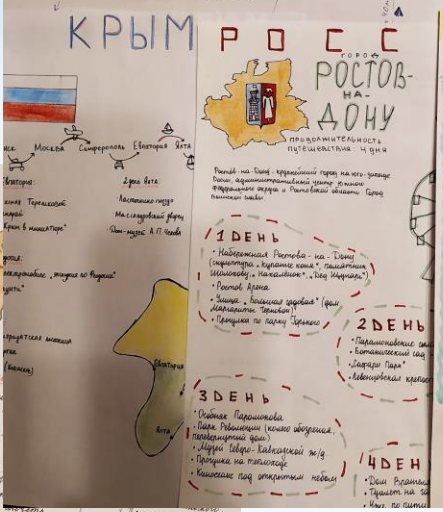 КРЫМ
Москва Симферополь Евпатория Ялта
Евпатория:
2 день Ялта:
Ласточкино гнездо
Массандровский дворец
Дом-музей А.П. Чехова
Крым в миниатюре"
Евпатория
Ялта
РОСС
ГОРОД
РОСТОВ-
НА-
ДОНУ
ПРОДОЛЖИТЕЛЬНОСТЬ
ПУТЕШЕСТВИЯ: 4 ДНЯ
Ростов-на-Дону - крупнейший город на юго-западе
России, административный центр Южного
федерального округа и Ростовской области. Город
воинской славы.
1 ДЕНЬ
• Набережная Ростова-на-Дону
(скульптура "Купание коня", памятник
Шолохову, "Нахаленок", "Дед Щукарь")
• Ростов Арена
• Улица "Большая садовая" (дом
Маргариты Черновой)
• Прогулка по парку Горького
2 ДЕНЬ
• Парамоновские
• Ботанический сад
• "Лафари Парк"
• Левенцовская
3 ДЕНЬ
• Особняк Парамонова
• Парк Революции (колесо обозрения,
перевернутый дом)
• Музей Северо-Кавказской ж/д
• Прогулка на теплоходе
• Киносеанс под открытым небом
4 ДЕН
• Дом Врангеля